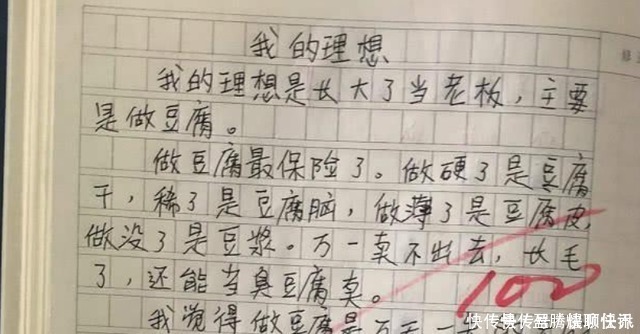 我的理想
我的理想是长大了当老板，主要
是做豆腐。
做豆腐最保险了。做硬了是豆腐
干，稀了是豆腐脑，做薄了是豆腐皮，
做没了是豆浆。万一卖不出去，长毛
了，还能当臭豆腐卖。
100
我觉得做豆腐是万无一